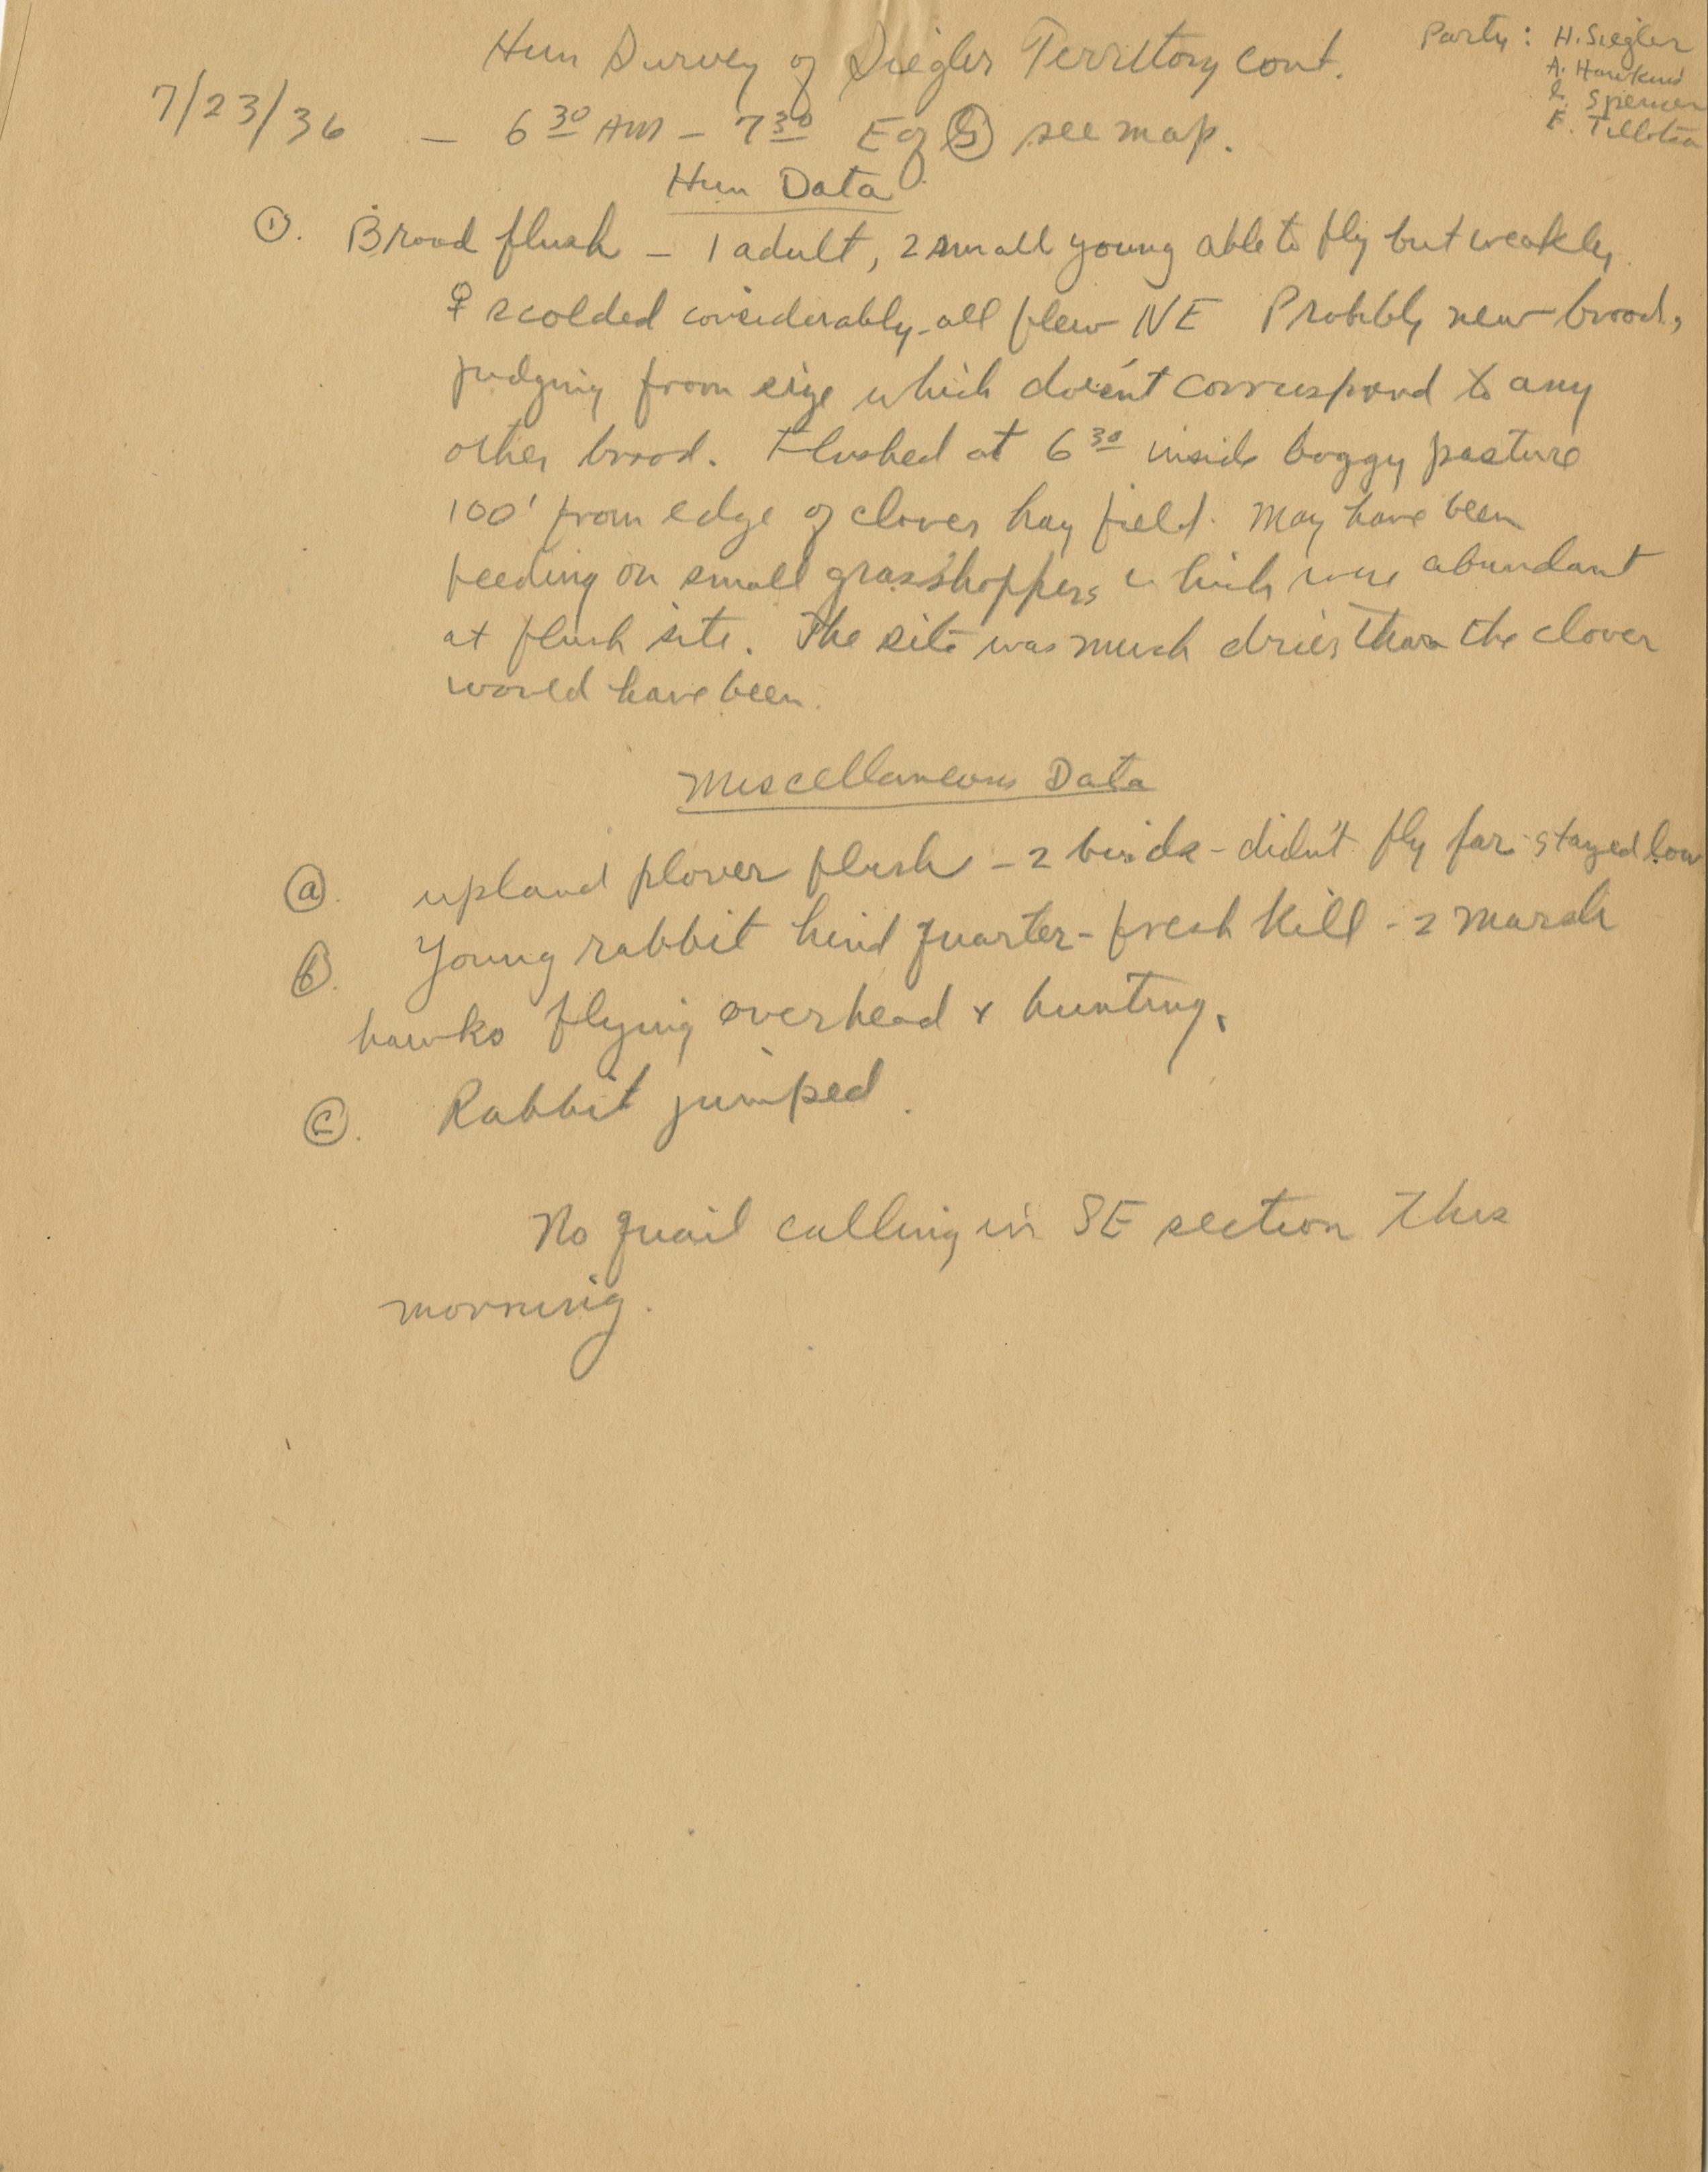 Hun Survey of Siegler Territory cont.
Party: H. Siegler
A. Hawkins
Spencer
F. Tillotson
7/23/36 — 6 30 AM – 7 30 E of see map.
Hun Data
①. Brood flush – 1 adult, 2 small young able to fly but weakly,
♀ scolded considerably - all flew NE Probbly new brood,
judging from size which does'nt correspond to any
other brood. Flushed at 6 30 inside boggy pasture
100' from edge of clover hay field. May have been
feeding on small grasshoppers which were abundant
at flush site. The site was much drier than the clover
would have been.
Miscellaneous Data
ⓐ. upland plover flush – 2 birds – didn't fly far - stayed low
ⓑ. Young rabbit hind quarter – fresh kill - 2 marsh
hawks flying overhead & hunting.
ⓒ. Rabbit jumped.
No quail calling in SE section this
morning.